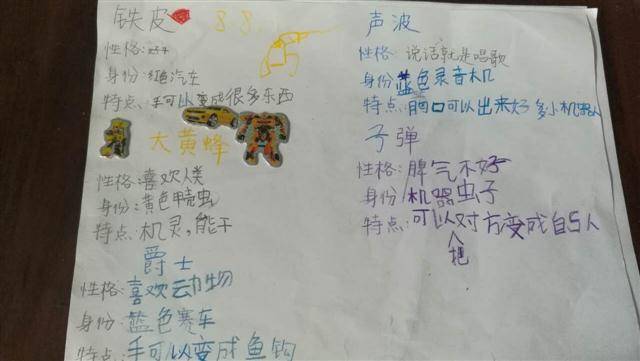 铁皮
88
性格:好
身份:红色汽车
特点:手可以变成很多东西
大黄蜂
性格:喜欢人类
身份:黄色甲壳虫
特点:机灵,能干
爵士
性格:喜欢动物
身份:蓝色赛车
特点:手可以变成鱼钩
声波
性格:说话就是唱歌
身份:蓝色录音机
特点:胸口可以出来好多小机器人
子弹
性格:脾气不好
身份:机器虫子
特点:可以把对方变成自5人